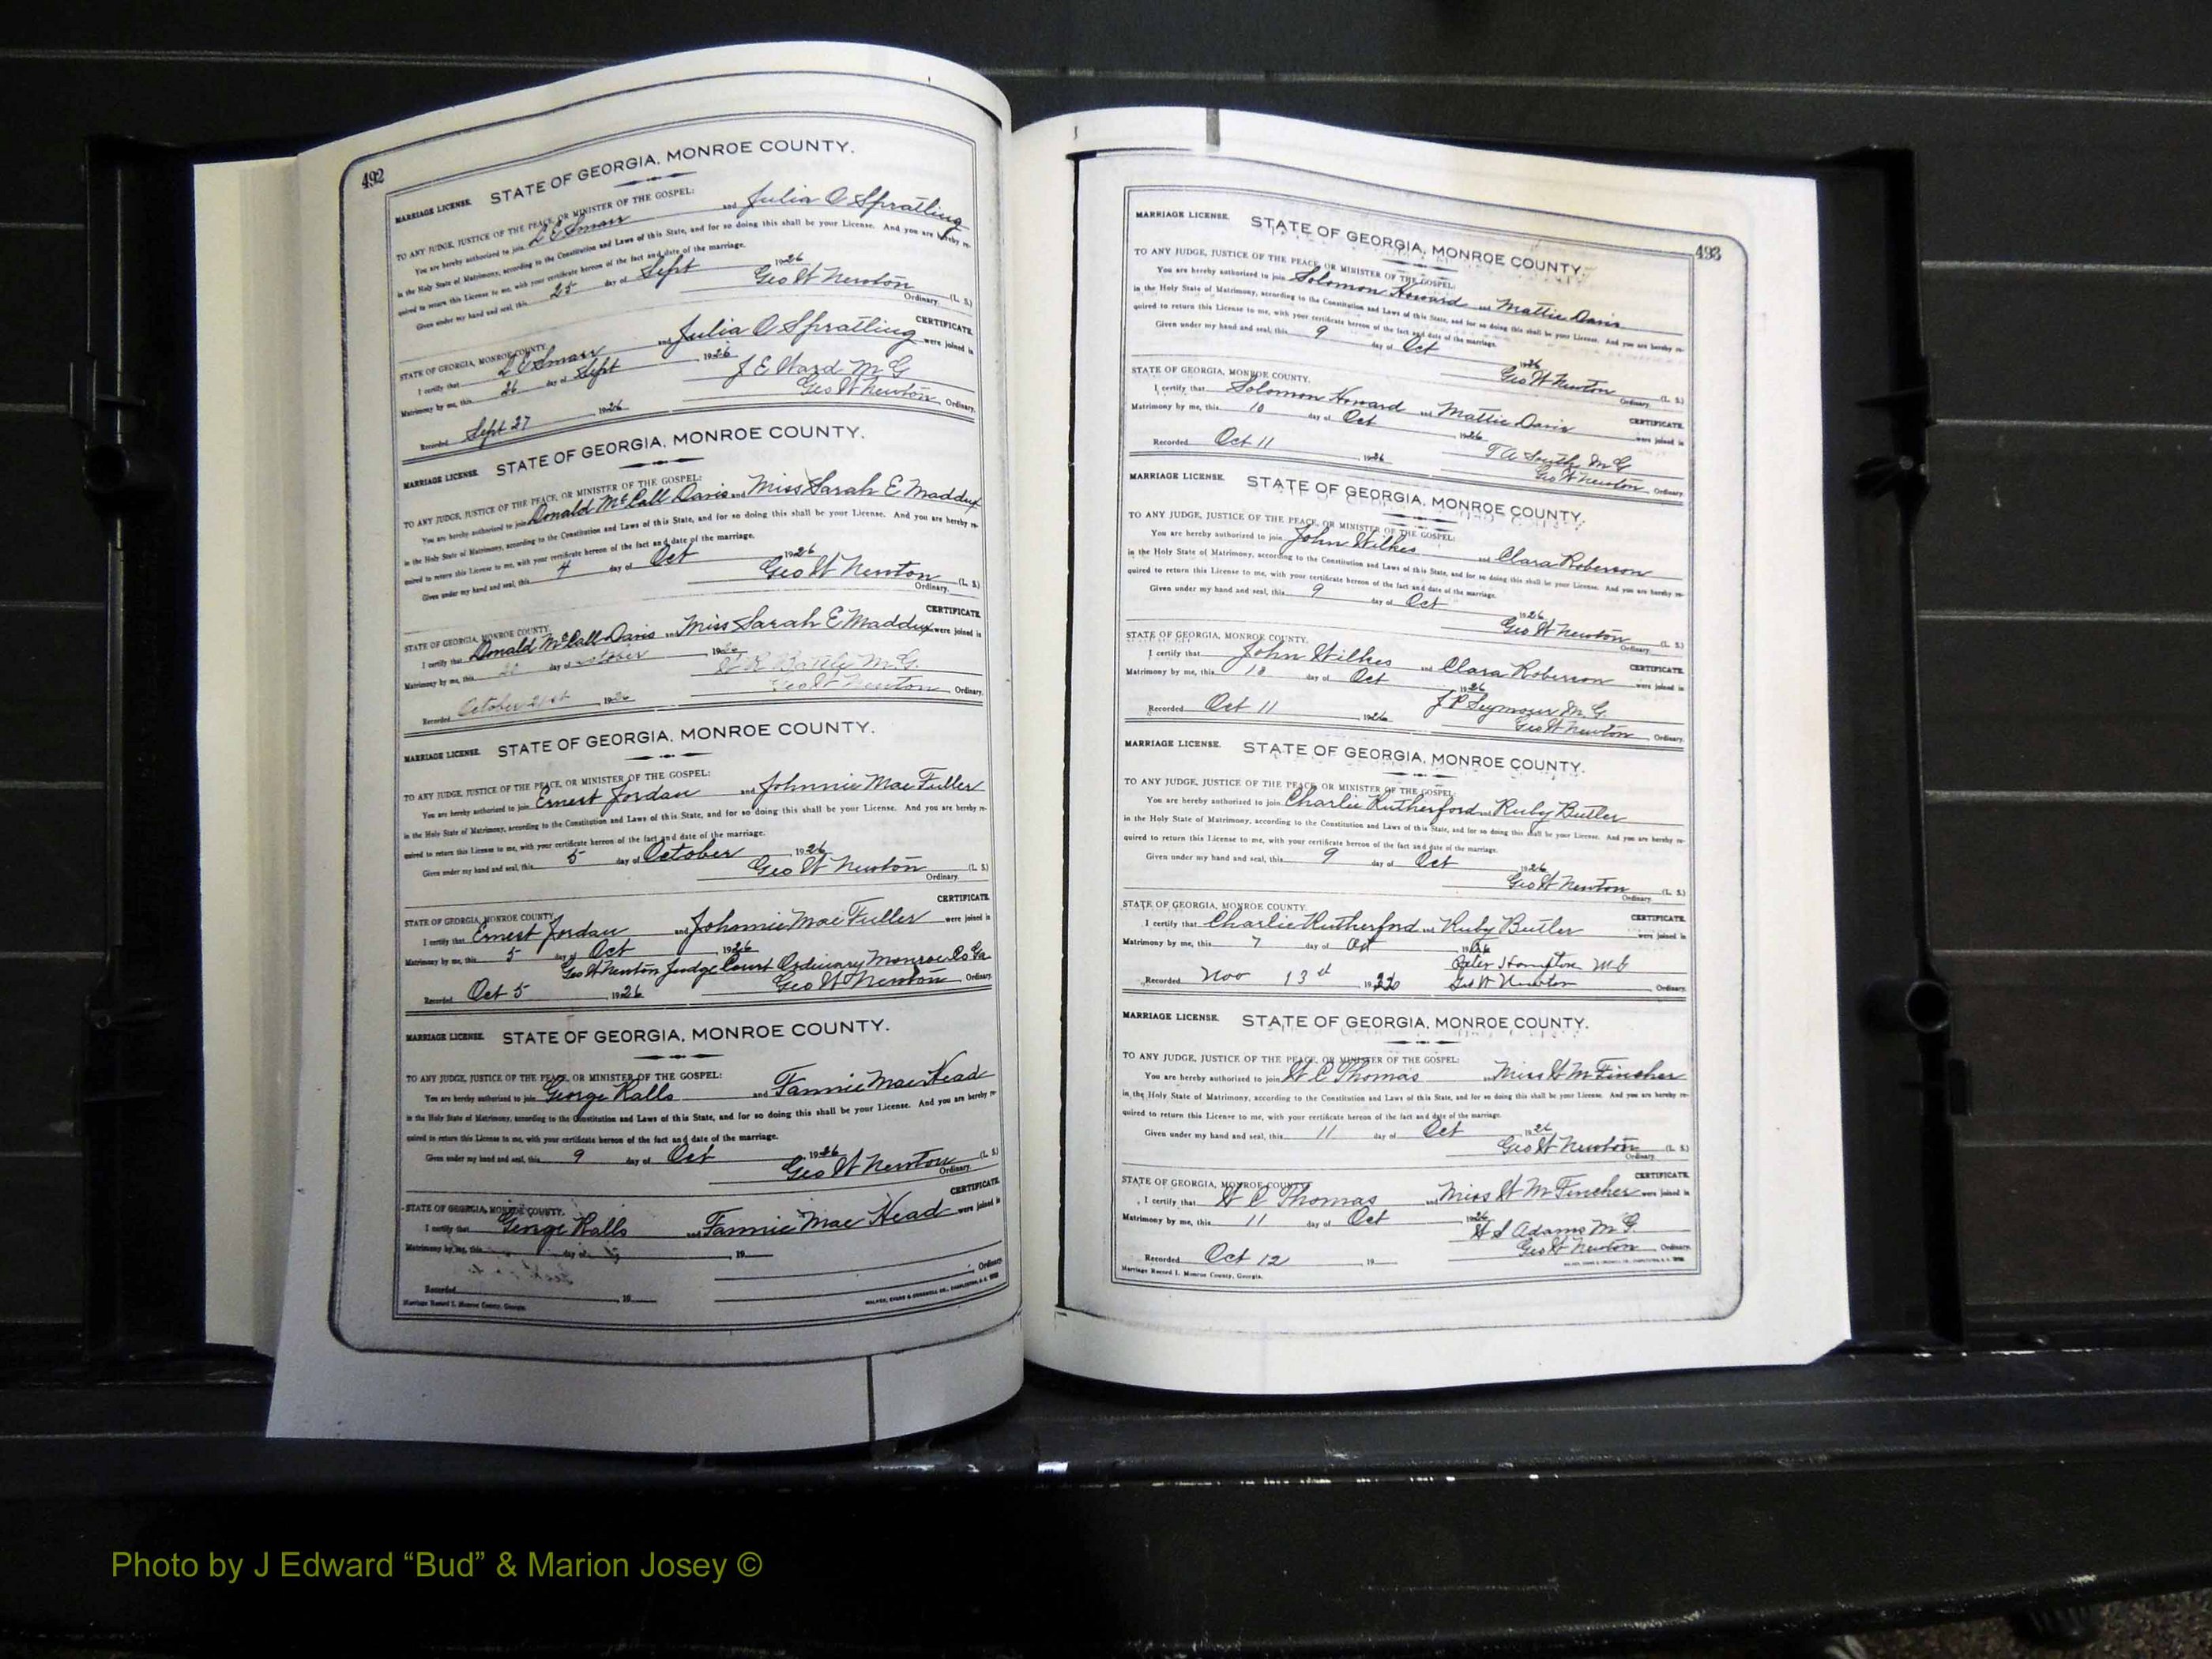 492
STATE OF GEORGIA, MONROE COUNTY.
MARRIAGE LICENSE.
TO ANY JUDGE, JUSTICE OF THE PEACE, OR MINISTER OF THE GOSPEL:
You are hereby authorized to join L E Smarr and Julia O Spratling
in the Holy State of Matrimony, according to the Constitution and Laws of this State, and for so doing this shall be your License. And you are hereby re-
quired to return this License to me, with your certificate hereon of the fact and date of the marriage.
Given under my hand and seal, this 25 day of Sept 1926
Geo W Newton (L. S.)
Ordinary.
CERTIFICATE
STATE OF GEORGIA, MONROE COUNTY.
I certify that L E Smarr and Julia O Spratling were joined in
Matrimony by me, this 26 day of Sept 1926
J E Ward M G
Recorded Sept 27 1926 Geo W Newton Ordinary.
MARRIAGE LICENSE. STATE OF GEORGIA, MONROE COUNTY.
TO ANY JUDGE, JUSTICE OF THE PEACE, OR MINISTER OF THE GOSPEL:
You are hereby authorized to join Donald McCall Davis and Miss Sarah E Maddux
in the Holy State of Matrimony, according to the Constitution and Laws of this State, and for so doing this shall be your License. And you are hereby re-
quired to return this License to me, with your certificate hereon of the fact and date of the marriage.
Given under my hand and seal, this 4 day of Oct 1926
Geo W Newton (L. S.)
Ordinary.
CERTIFICATE
STATE OF GEORGIA, MONROE COUNTY.
I certify that Donald McCall Davis and Miss Sarah E Maddux were joined in
Matrimony by me, this day of October 1926
Battle M.G.
Recorded October 21st 1926 Geo W Newton Ordinary.
MARRIAGE LICENSE. STATE OF GEORGIA, MONROE COUNTY.
TO ANY JUDGE, JUSTICE OF THE PEACE, OR MINISTER OF THE GOSPEL:
You are hereby authorized to join Ernest Jordan and Johnnie Mae Fuller
in the Holy State of Matrimony, according to the Constitution and Laws of this State, and for so doing this shall be your License. And you are hereby re-
quired to return this License to me, with your certificate hereon of the fact and date of the marriage.
Given under my hand and seal, this 5 day of October 1926
Geo W Newton (L. S.)
Ordinary.
CERTIFICATE.
STATE OF GEORGIA, MONROE COUNTY.
I certify that Ernest Jordan and Johnnie Mae Fuller were joined in
Matrimony by me, this 5 day of Oct 1926
Geo W Newton Judge Court Ordinary Monroe Co Ga
Recorded Oct 5 1926 Geo W Newton Ordinary.
MARRIAGE LICENSE. STATE OF GEORGIA, MONROE COUNTY.
TO ANY JUDGE, JUSTICE OF THE PEACE, OR MINISTER OF THE GOSPEL:
You are hereby authorized to join George Ralls and Fannie Mae Head
in the Holy State of Matrimony, according to the Constitution and Laws of this State, and for so doing this shall be your License. And you are hereby re-
quired to return this License to me, with your certificate hereon of the fact and date of the marriage.
Given under my hand and seal, this 9 day of Oct 1926
Geo W Newton (L. S.)
Ordinary
CERTIFICATE
STATE OF GEORGIA, MONROE COUNTY.
I certify that George Ralls and Fannie Mae Head were joined in
Matrimony by me, this day of 19
Ordinary
Recorded 19
Marriage Record I. Monroe County, Georgia.
493
MARRIAGE LICENSE. STATE OF GEORGIA, MONROE COUNTY.
TO ANY JUDGE, JUSTICE OF THE PEACE, OR MINISTER OF THE GOSPEL:
You are hereby authorized to join Solomon Howard and Mattie Davis
in the Holy State of Matrimony, according to the Constitution and Laws of this State, and for so doing this shall be your License. And you are hereby re-
quired to return this License to me, with your certificate hereon of the fact and date of the marriage.
Given under my hand and seal, this 9 day of Oct 1926
Geo W Newton (L. S.)
Ordinary.
STATE OF GEORGIA, MONROE COUNTY. CERTIFICATE.
I certify that Solomon Howard and Mattie Davis were joined in
Matrimony by me, this 10 day of Oct 1926
T A Smith M G
Recorded Oct 11 1926 Geo W Newton Ordinary.
MARRIAGE LICENSE. STATE OF GEORGIA, MONROE COUNTY.
TO ANY JUDGE, JUSTICE OF THE PEACE, OR MINISTER OF THE GOSPEL:
You are hereby authorized to join John Wilkes and Clara Roberson
in the Holy State of Matrimony, according to the Constitution and Laws of this State, and for so doing this shall be your License. And you are hereby re-
quired to return this License to me, with your certificate hereon of the fact and date of the marriage.
Given under my hand and seal, this 9 day of Oct 1926
Geo W Newton (L. S.)
Ordinary.
STATE OF GEORGIA, MONROE COUNTY. CERTIFICATE.
I certify that John Wilkes and Clara Roberson were joined in
Matrimony by me, this 10 day of Oct 1926
J P Seymour M. G.
Recorded Oct 11 1926 Geo W Newton Ordinary.
MARRIAGE LICENSE. STATE OF GEORGIA, MONROE COUNTY.
TO ANY JUDGE, JUSTICE OF THE PEACE, OR MINISTER OF THE GOSPEL:
You are hereby authorized to join Charlie Rutherford and Ruby Butler
in the Holy State of Matrimony, according to the Constitution and Laws of this State, and for so doing this shall be your License. And you are hereby re-
quired to return this License to me, with your certificate hereon of the fact and date of the marriage.
Given under my hand and seal, this 9 day of Oct 1926
Geo W Newton (L. S.)
Ordinary.
STATE OF GEORGIA, MONROE COUNTY. CERTIFICATE.
I certify that Charlie Rutherford and Ruby Butler were joined in
Matrimony by me, this 7 day of Oct 1926
Hampton M G
Recorded Nov 13th 1926 Geo W Newton Ordinary.
MARRIAGE LICENSE. STATE OF GEORGIA, MONROE COUNTY.
TO ANY JUDGE, JUSTICE OF THE PEACE, OR MINISTER OF THE GOSPEL:
You are hereby authorized to join W C Thomas and Miss W M Fincher
in the Holy State of Matrimony, according to the Constitution and Laws of this State, and for so doing this shall be your License. And you are hereby re-
quired to return this License to me, with your certificate hereon of the fact and date of the marriage.
Given under my hand and seal, this 11 day of Oct 1926
Geo W Newton (L. S.)
Ordinary.
STATE OF GEORGIA, MONROE COUNTY. CERTIFICATE.
I certify that W C Thomas and Miss W M Fincher were joined in
Matrimony by me, this 11 day of Oct 1926
W S Adams M. G.
Recorded Oct 12 19 Geo W Newton Ordinary.
Marriage Record I. Monroe County, Georgia.
Photo by J Edward “Bud” & Marion Josey ©